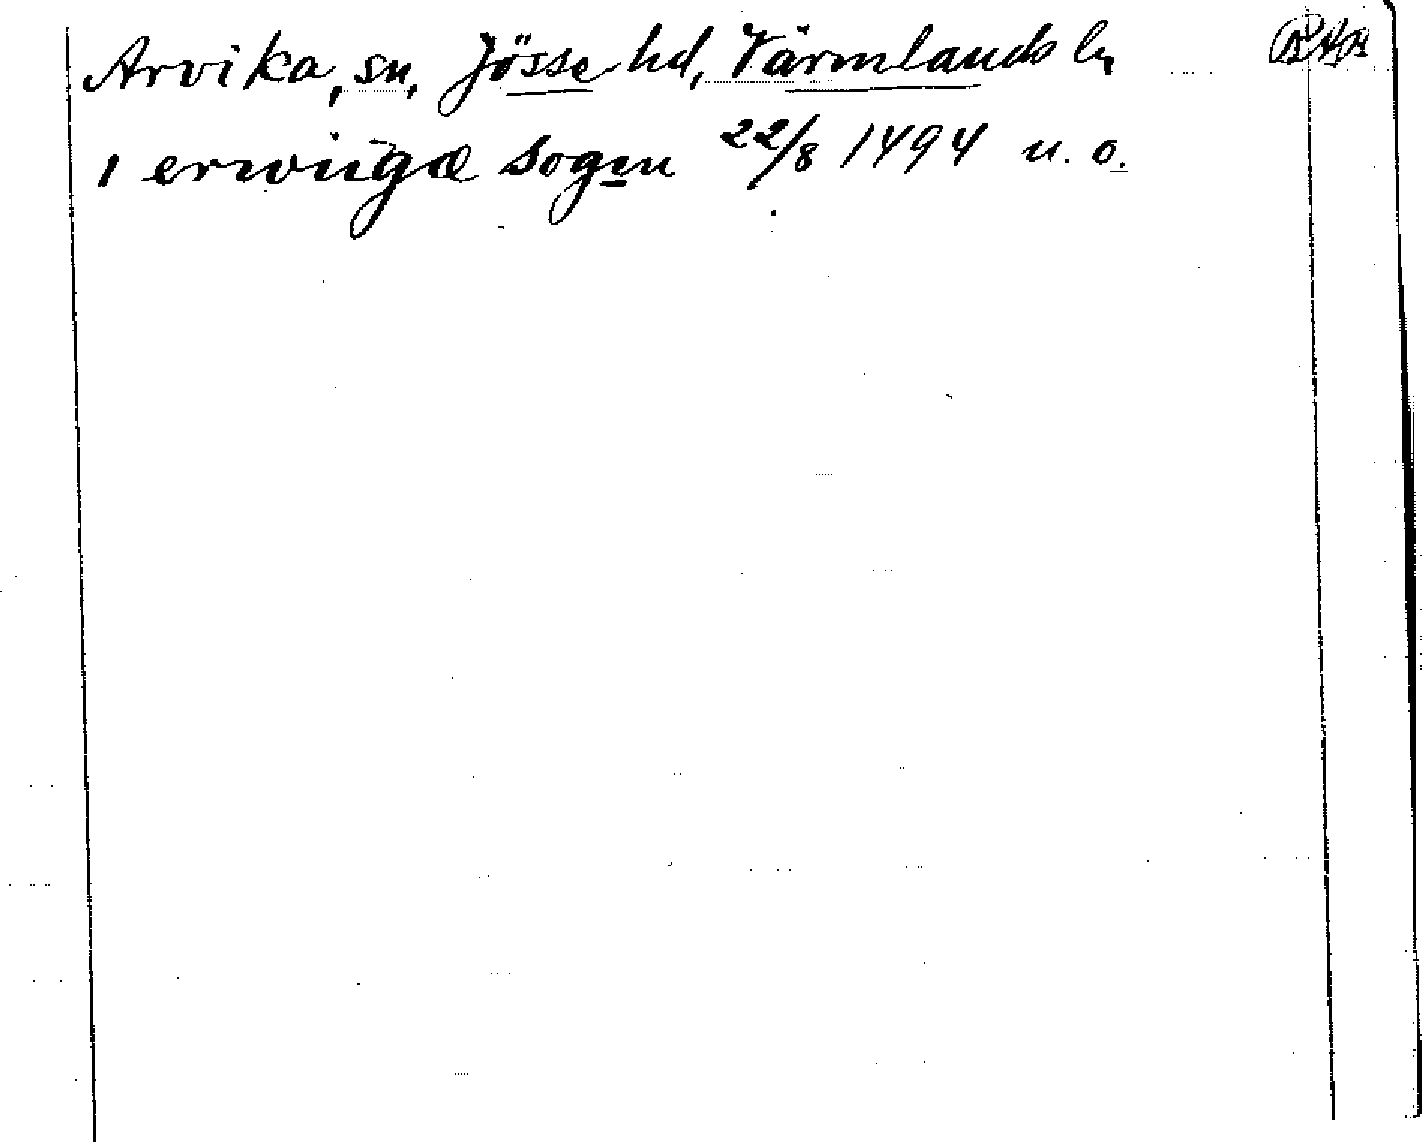 Arvika, sn, Jösse hd, Värmlands ln
1 erwiigæ sogen 22/8 1494 u. o.